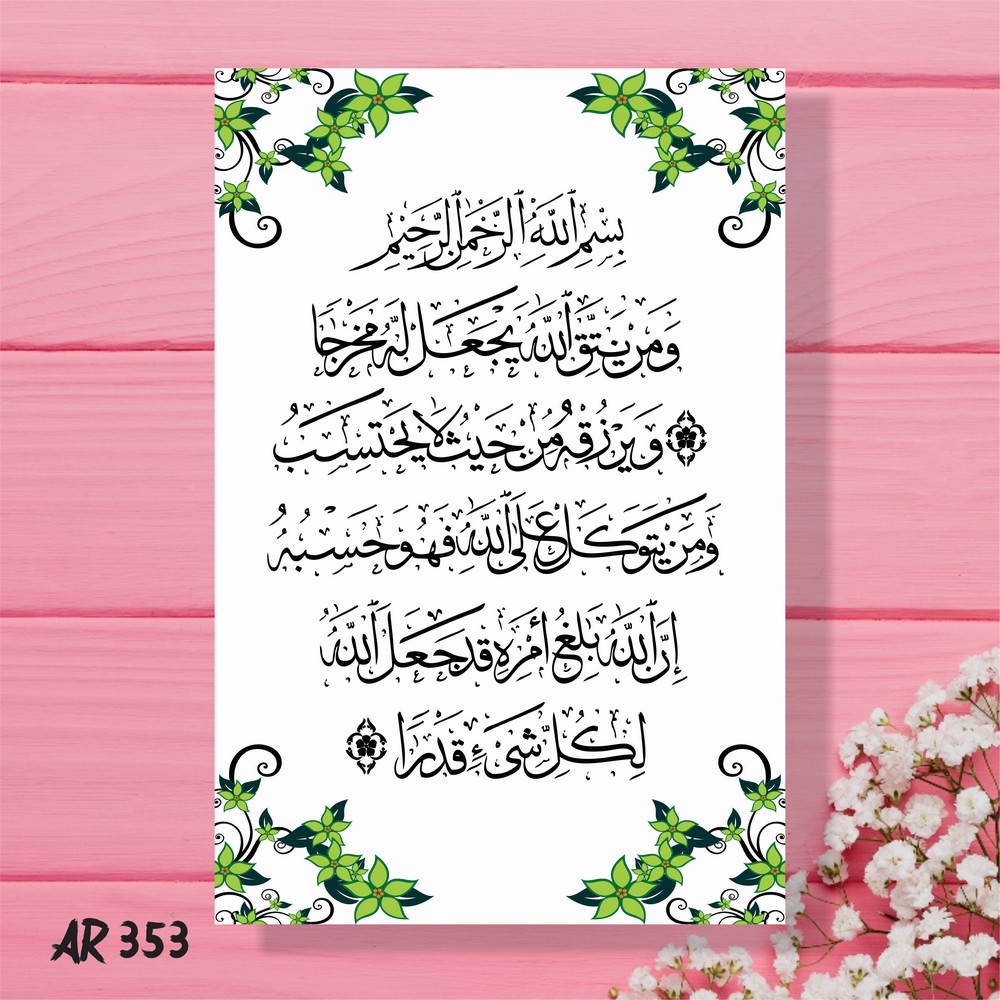 بِسْمِ ٱللَّهِ ٱلرَّحْمَٰنِ ٱلرَّحِيمِ
وَمَن يَتَّقِ ٱللَّهَ يَجْعَل لَّهُ مَخْرَجًا
وَيَرْزُقْهُ مِنْ حَيْثُ لَا يَحْتَسِبُ
وَمَن يَتَوَكَّلْ عَلَى ٱللَّهِ فَهُوَ حَسْبُهُ
إِنَّ ٱللَّهَ بَٰلِغُ أَمْرِهِ قَدْ جَعَلَ ٱللَّهُ
لِكُلِّ شَىْءٍ قَدْرًا
AR 353